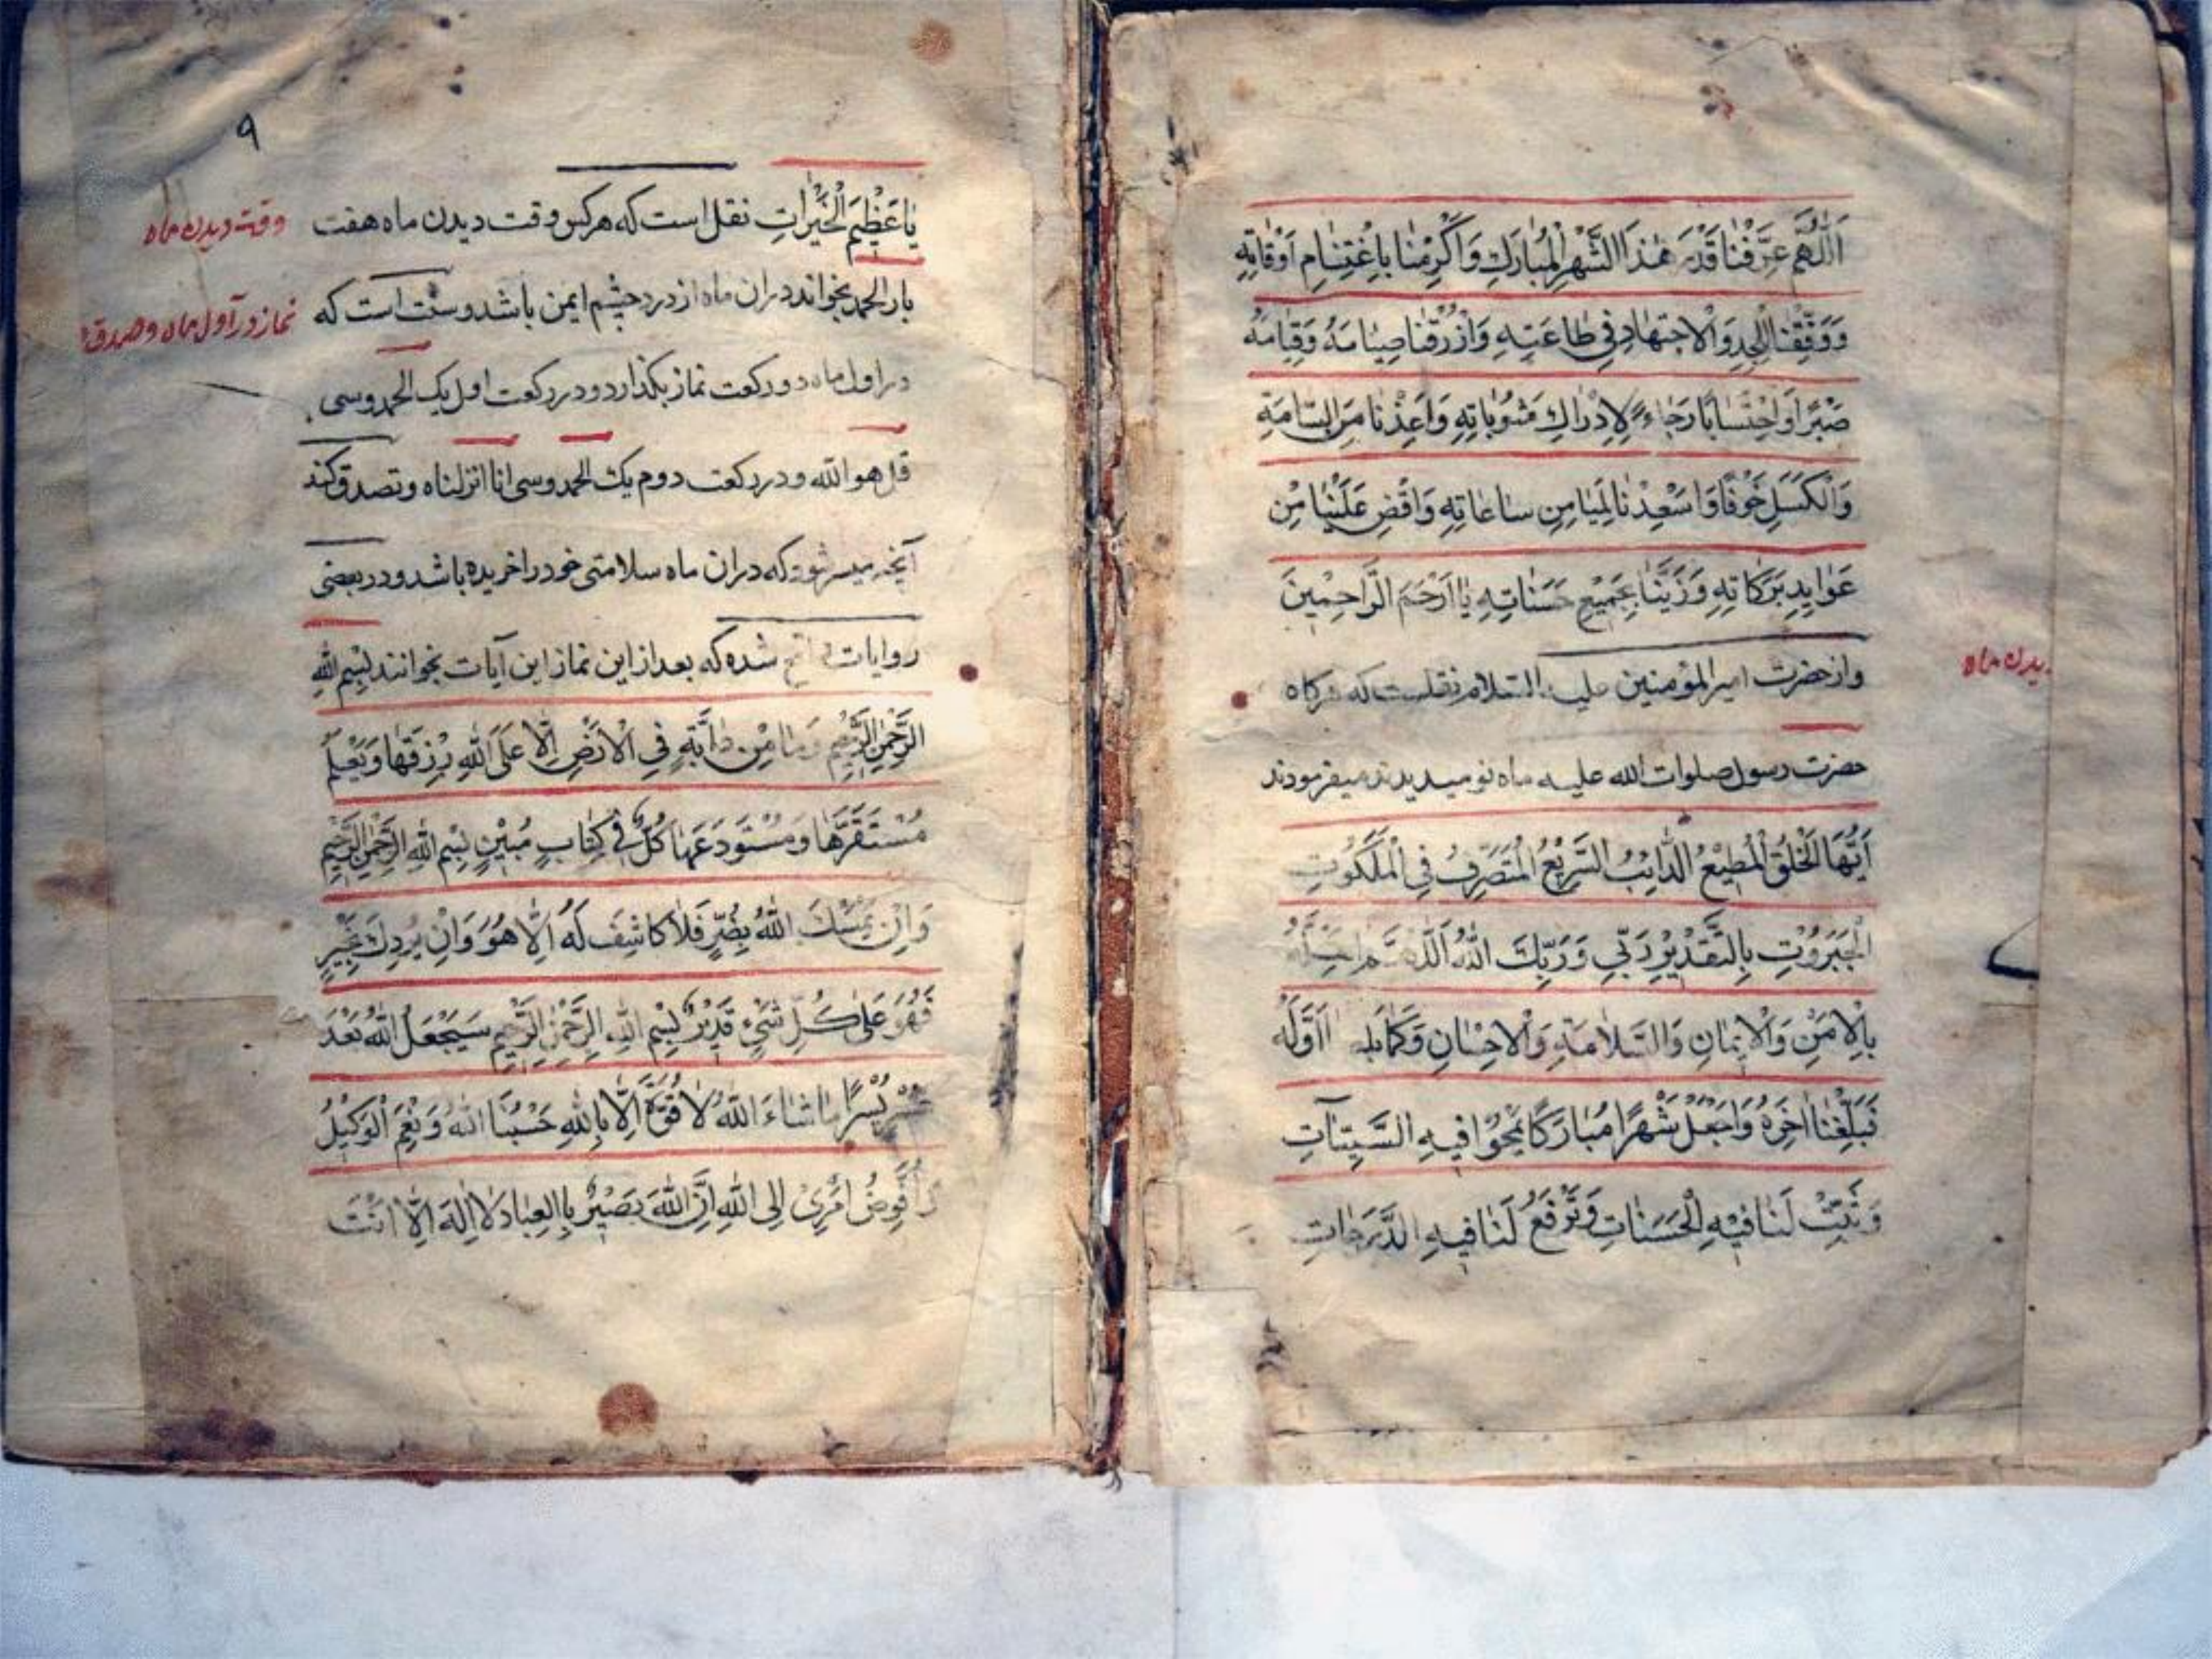 اَللّٰهُمَّ عَرِّفْنَا قَدْرَ هٰذَا الشَّهْرِ الْمُبَارَكِ وَاَكْرِمْنَا بِاغْتِنَامِ اَوْقَاتِهِ
وَوَفِّقْنَا لِلْجِدِ وَالْاِجْتِهَادِ فِي طَاعَتِهِ وَارْزُقْنَا صِيَامَهُ وَقِيَامَهُ
صَبْرًا وَاحْتِسَابًا رَجَاءً لِاِدْرَاكِ مَثُوبَاتِهِ وَاَعِذْنَا مِنَ السَّامَةِ
وَالْكَسَلِ خَوْفًا وَاَسْعِدْنَا لِمَيَامِنِ سَاعَاتِهِ وَاَفِضْ عَلَيْنَا مِنْ
عَوَايِدِ بَرَكَاتِهِ وَزَيِّنَّا بِجَمِيْعِ حَسَنَاتِهِ يَا اَرْحَمَ الرَّاحِمِيْنَ
واز حضرت امیر المؤمنین علیه السلام نقلست که هرکاه
دیدن ماه
حضرت رسول صلوات الله علیه ماه نو میدیدند میفرمودند
اَيُّهَا الْخَلْقُ الْمُطِيْعُ الدَّائِبُ السَّرِيْعُ الْمُتَصَرِّفُ فِي الْمَلَكُوتِ
الْجَبَرُوْتِ بِالتَّقْدِيْرِ رَبِّي وَرَبُّكَ اللّٰهُ اَللّٰهُمَّ اَهِلَّهُ
بِالْاَمْنِ وَالْاِيْمَانِ وَالسَّلَامَةِ وَالْاِحْسَانِ وَكَمَا اَوَّلَهُ
فَبَلِّغْنَا اٰخِرَهُ وَاجْعَلْ شَهْرًا مُبَارَكًا تَمْحُوْا فِيهِ السَّيِّئَآتِ
وَتُثْبِتُ لَنَا فِيْهِ الْحَسَنَاتِ وَتَرْفَعُ لَنَا فِيهِ الدَّرَجَاتِ
۹
يَا عَظِيْمَ الْخَيْرَاتِ نقل است که هرکس وقت دیدن ماه هفت
وقت دیدن ماه
بار الحمد بخواند دران ماه از درد چشم ایمن باشد و سنت است که
نماز در اول ماه وصدقه
در اول ماه دو رکعت نماز بکذارد و در رکعت اول یک الحمد و سی
قل هو الله و در رکعت دوم یک الحمد و سی انا انزلناه و تصدق کند
آنچه میسر شود که دران ماه سلامتی خود را خریده باشد و در بعضی
روایات شده که بعد از این نماز این آیات بخوانند بِسْمِ اللهِ
الرَّحْمٰنِ الرَّحِيْمِ وَمَا مِنْ دَابَّةٍ فِي الْاَرْضِ اِلَّا عَلَى اللهِ رِزْقُهَا وَيَعْلَمُ
مُسْتَقَرَّهَا وَمُسْتَوْدَعَهَا كُلٌّ فِي كِتَابٍ مُبِيْنٍ بِسْمِ اللهِ الرَّحْمٰنِ الرَّحِيْمِ
وَاِنْ يَمْسَسْكَ اللّٰهُ بِضُرٍّ فَلَا كَاشِفَ لَهُ اِلَّا هُوَ وَاِنْ يُرِدْكَ بِخَيْرٍ
فَهُوَ عَلٰى كُلِّ شَيْءٍ قَدِيْرٌ بِسْمِ اللهِ الرَّحْمٰنِ الرَّحِيْمِ سَيَجْعَلُ اللّٰهُ بَعْدَ
عُسْرٍ يُسْرًا مَا شَاءَ اللّٰهُ لَا قُوَّةَ اِلَّا بِاللهِ حَسْبُنَا اللهُ وَنِعْمَ الْوَكِيْلُ
وَاُفَوِّضُ اَمْرِيْ اِلَى اللهِ اِنَّ اللّٰهَ بَصِيْرٌ بِالْعِبَادِ لَا اِلٰهَ اِلَّا اَنْتَ